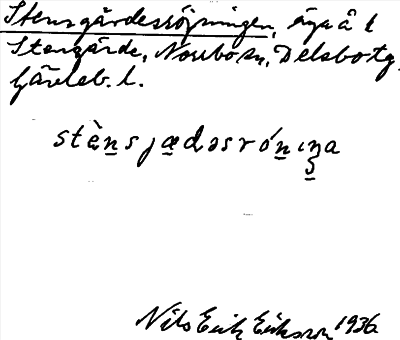 Stensgärdesröjningen, äga å t
Stengärde, Norrbo sn, Delsbo tg,
Gävleb. l.
stènsjædəsrónıŋa
Nils Erik Eriksson 1936